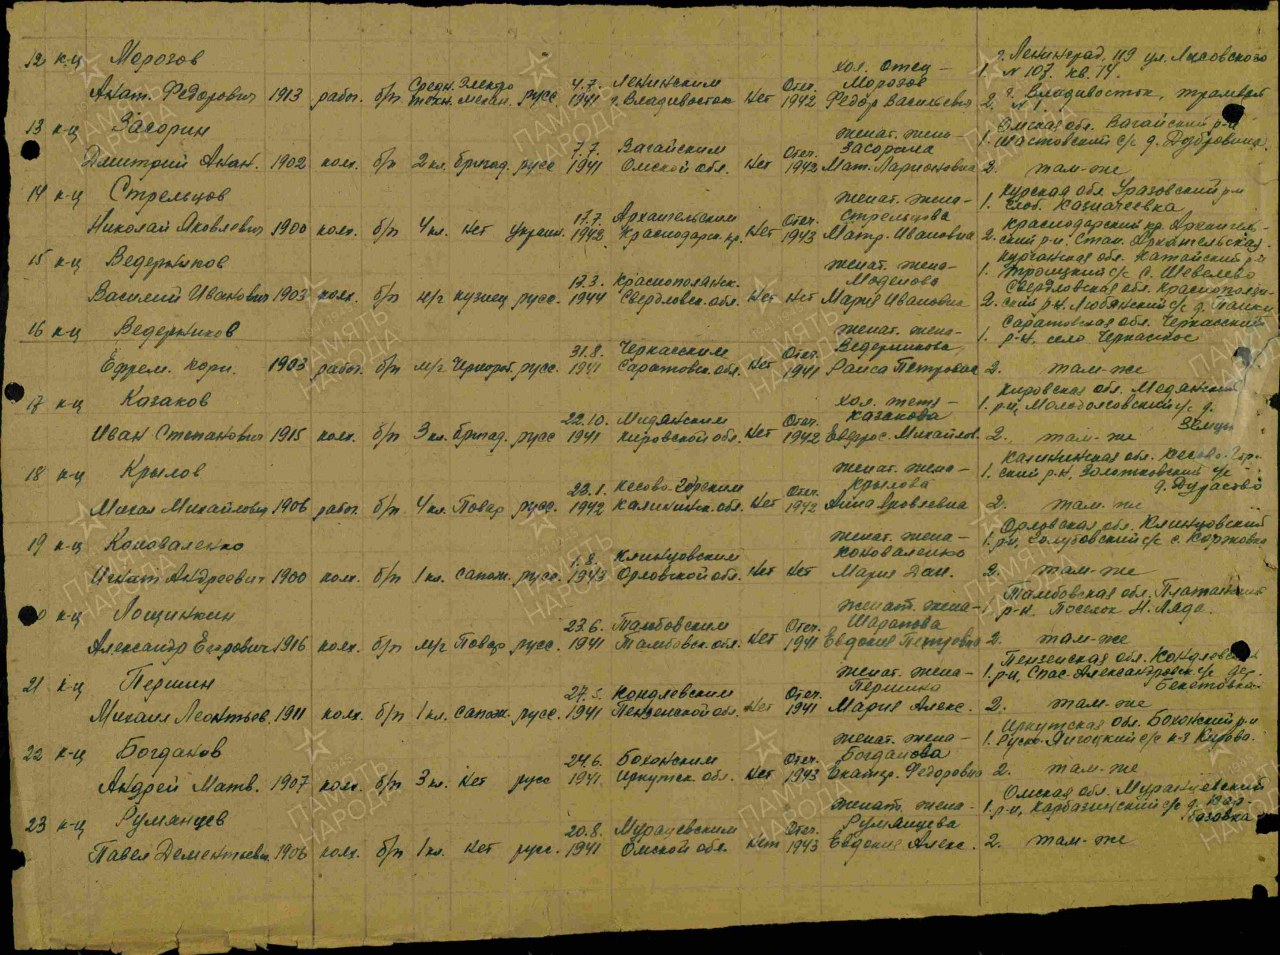 12 к-ц Морозов хол. отец – г. Ленинград, 119 ул.
Средн. Электро 4.7. Ленинским Отеч. Морозов 1. N 107 кв. 14.
Анат. Федорович 1913 рабоч. б/п техн. механ. русс. 1941 г. Владивосток Нет 1942 Федор Васильевич 2. г. Владивосток, трампарк N 1
13 к-ц Засорин женат. жена – Омская обл. Вагайский р-н
7.7. Вагайским Отеч. Засорина 1. Шастовский с/с д. Дубровина
Дмитрий Анан. 1902 колх. б/п 2 кл. бригад. русс 1941 Омской обл. Нет 1942 Мат. Ларионовна 2. там-же
14 к-ц Стрельцов женат. жена – 1. Курская обл. Уразовский р-н
17.7. Архангельским Отеч. Стрельцова Слоб. Казначеевка
Николай Яковлевич 1900 колх. б/п 4 кл. Нет украин. 1942 Краснодарск. кр. Нет 1943 Матр. Ивановна 2. Краснодарский кр. Архангель-
ский р-н. Стан. Архангельская
15 к-ц Ведерников женат. жена – Курганская обл. Катайский р-н
17.3. Краснополянск. 1. Троицкий с/с с. Шевелево
Василий Иванович 1903 колх. б/п н/г кузнец русс. 1944 Свердловск. обл. Нет Нет Мария Ивановна 2. Свердловская обл. Краснополян-
ский р-н.
16 к-ц Ведерников женат. жена – Саратовская обл. Черкасский
31.8. Черкасским Отеч. Ведерникова 1. р-н, село Черкасское
Ефрем. Корн. 1903 рабоч. б/п м/г Чернораб. русс. 1941 Саратовск. обл. Нет 1941 Раиса Петровна 2. там-же
17 к-ц Казаков хол. тетя – Кировская обл. Медянский
22.10. Мидянским Отеч. Казакова 1. р-н, с/с д.
Иван Степанович 1915 колх. б/п 3 кл. бригад. русс 1941 Кировской обл. Нет 1942 Михайлов. 2. там-же
18 к-ц Крылов женат. жена – Калининская обл. Кесово-Гор-
23.1. Кесово-Горским Отеч. Крылова 1. ский р-н, с/с
Михал Михайлович 1906 рабоч. б/п 4 кл. Повар русс. 1942 Калининск. обл. Нет 1942 Анна Яковлевна 2. там-же
19 к-ц Коноваленко женат. жена – Орловская обл. Клинцовский
1.8. Клинцовским Коноваленко 1. р-н, с/с с. Коржовка
Игнат Андреевич 1900 колх. б/п 1 кл. сапож. русс. 1943 Орловской обл. Нет Нет Мария Дан. 2. там-же
к-ц Лощинкин женат. жена – Тамбовская обл. Платоновский
23.6. Тамбовским Отеч. Шарапова 1. р-н. Поселок Н. Ляда.
Александр Егорович 1916 колх. б/п м/г Повар русс. 1941 Тамбовск. обл. Нет 1941 Евдокия Петровна 2. там-же
21 к-ц Першин женат. жена – Пензенская обл.
Отеч. Першина 1. р-н, Спас. Александровск. с/с дер.
Михаил Леонтьев. 1911 колх. б/п 1 кл. сапож. русс. 1941 Пензенской обл. Нет 1941 Мария Алекс. 2. там-же Бекетовка
22 к-ц Богданов женат. жена – Иркутская обл. Боханский р-н
24.6. Боханским Отеч. Богданова 1. с/с к-з Кирова.
Андрей Матв. 1907 колх. б/п 3 кл. Нет русс 1941 Иркутск. обл. Нет 1943 Екатер. Федоровна 2. там-же
23 к-ц Румянцев женат. жена – Омская обл. Муранцевский
20.8. Отеч. Румянцева 1. р-н, с/с д.
Павел Дементьевич 1906 колх. б/п 1 кл. Нет русс. 1941 Омской обл. Нет 1943 Евдокия Алекс. 2. там-же
ПАМЯТЬ НАРОДА